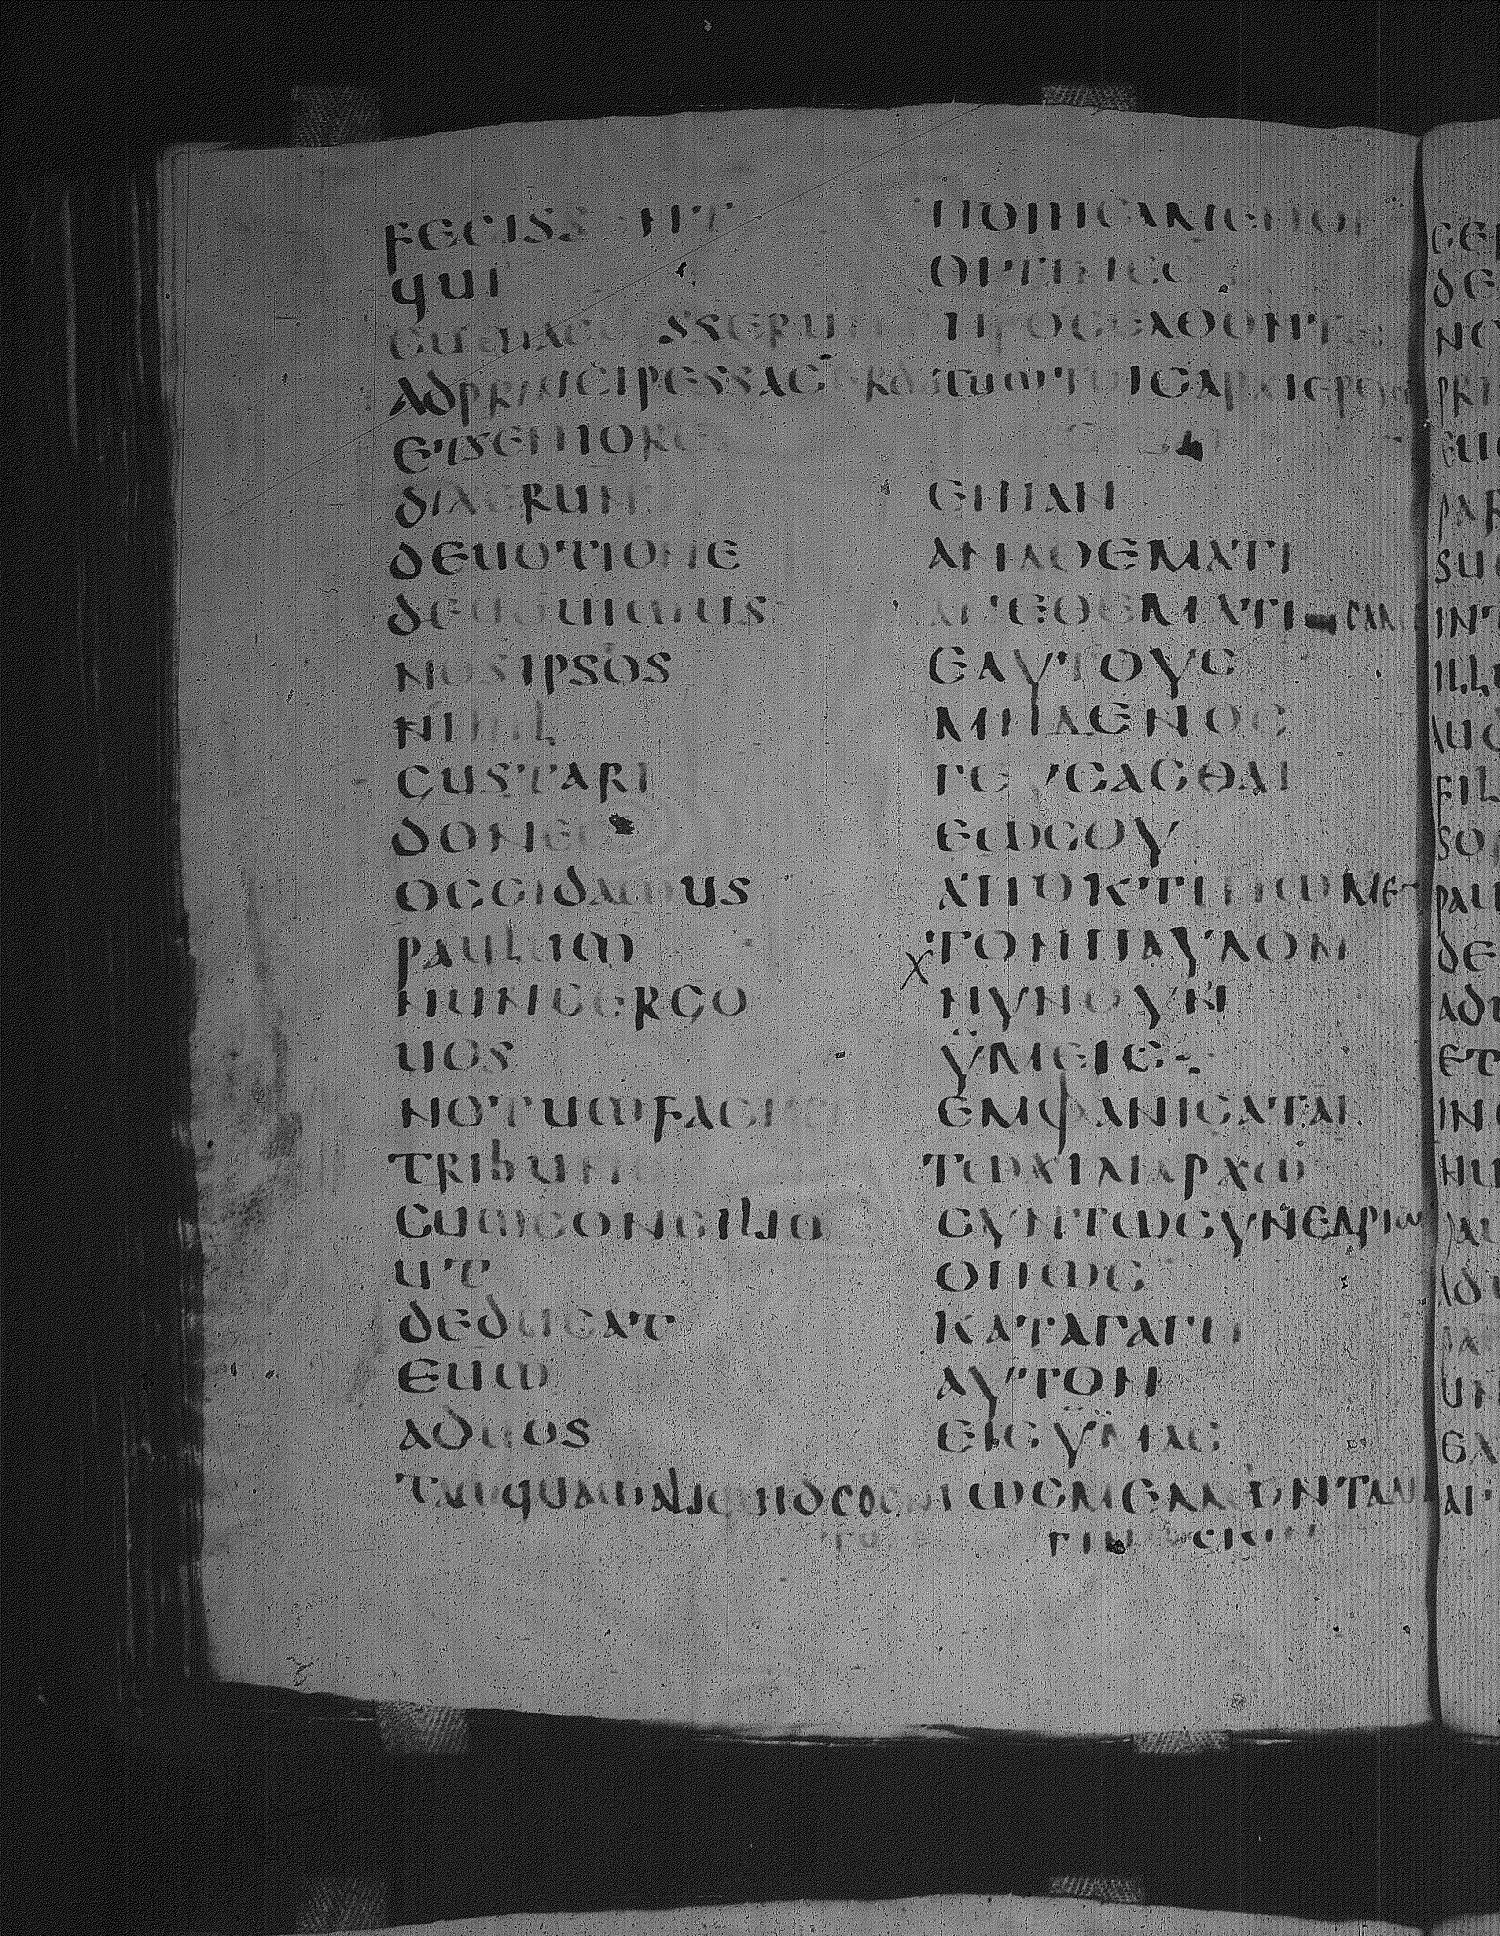 FECISSENT ΠΟΙΗCΑΜΕΝΟΙ
QUI ΟΙΤΙΝΕC
CUMACCESSERUNT ΠΡΟCΕΛΘΟΝΤΕC
ADPRINCIPESSACERDOTUM ΤΟΙCΑΡΧΙΕΡΕΥ
ETSENIORES
DIXERUNT ΕΙΠΑΝ
DEUOTIONE ΑΝΑΘΕΜΑΤΙ
DEUOUIMUS ΑΝΕΘΕΜΑΤΙCΑΜ
NOSIPSOS ΕΑΥΤΟΥC
NIHIL ΜΗΔΕΝΟC
GUSTARI ΓΕΥCΑCΘΑΙ
DONEC ΕΩCΟΥ
OCCIDAMUS ΑΠΟΚΤΙΝΩΜΕ
PAULUM ΤΟΝΠΑΥΛΟΝ
NUNCERGO ΝΥΝΟΥΝ
UOS ΫΜΕΙC
NOTUMFACITE ΕΜΦΑΝΙCΑΤΑΙ
TRIBUNO ΤΩΧΙΛΙΑΡΧΩ
CUMCONCILIO CΥΝΤΩCΥΝΕΔΡΙΩ
UT ΟΠΩC
DEDUCAT ΚΑΤΑΓΑΓΗ
EUM ΑΥΤΟΝ
ADUOS ΕΙCΫΜΑC
TAMQUAMALIQUIDCOGNI ΩCΜΕΛΛΟΝΤΑC
TU ΓΙΝΩCΚΙΝ